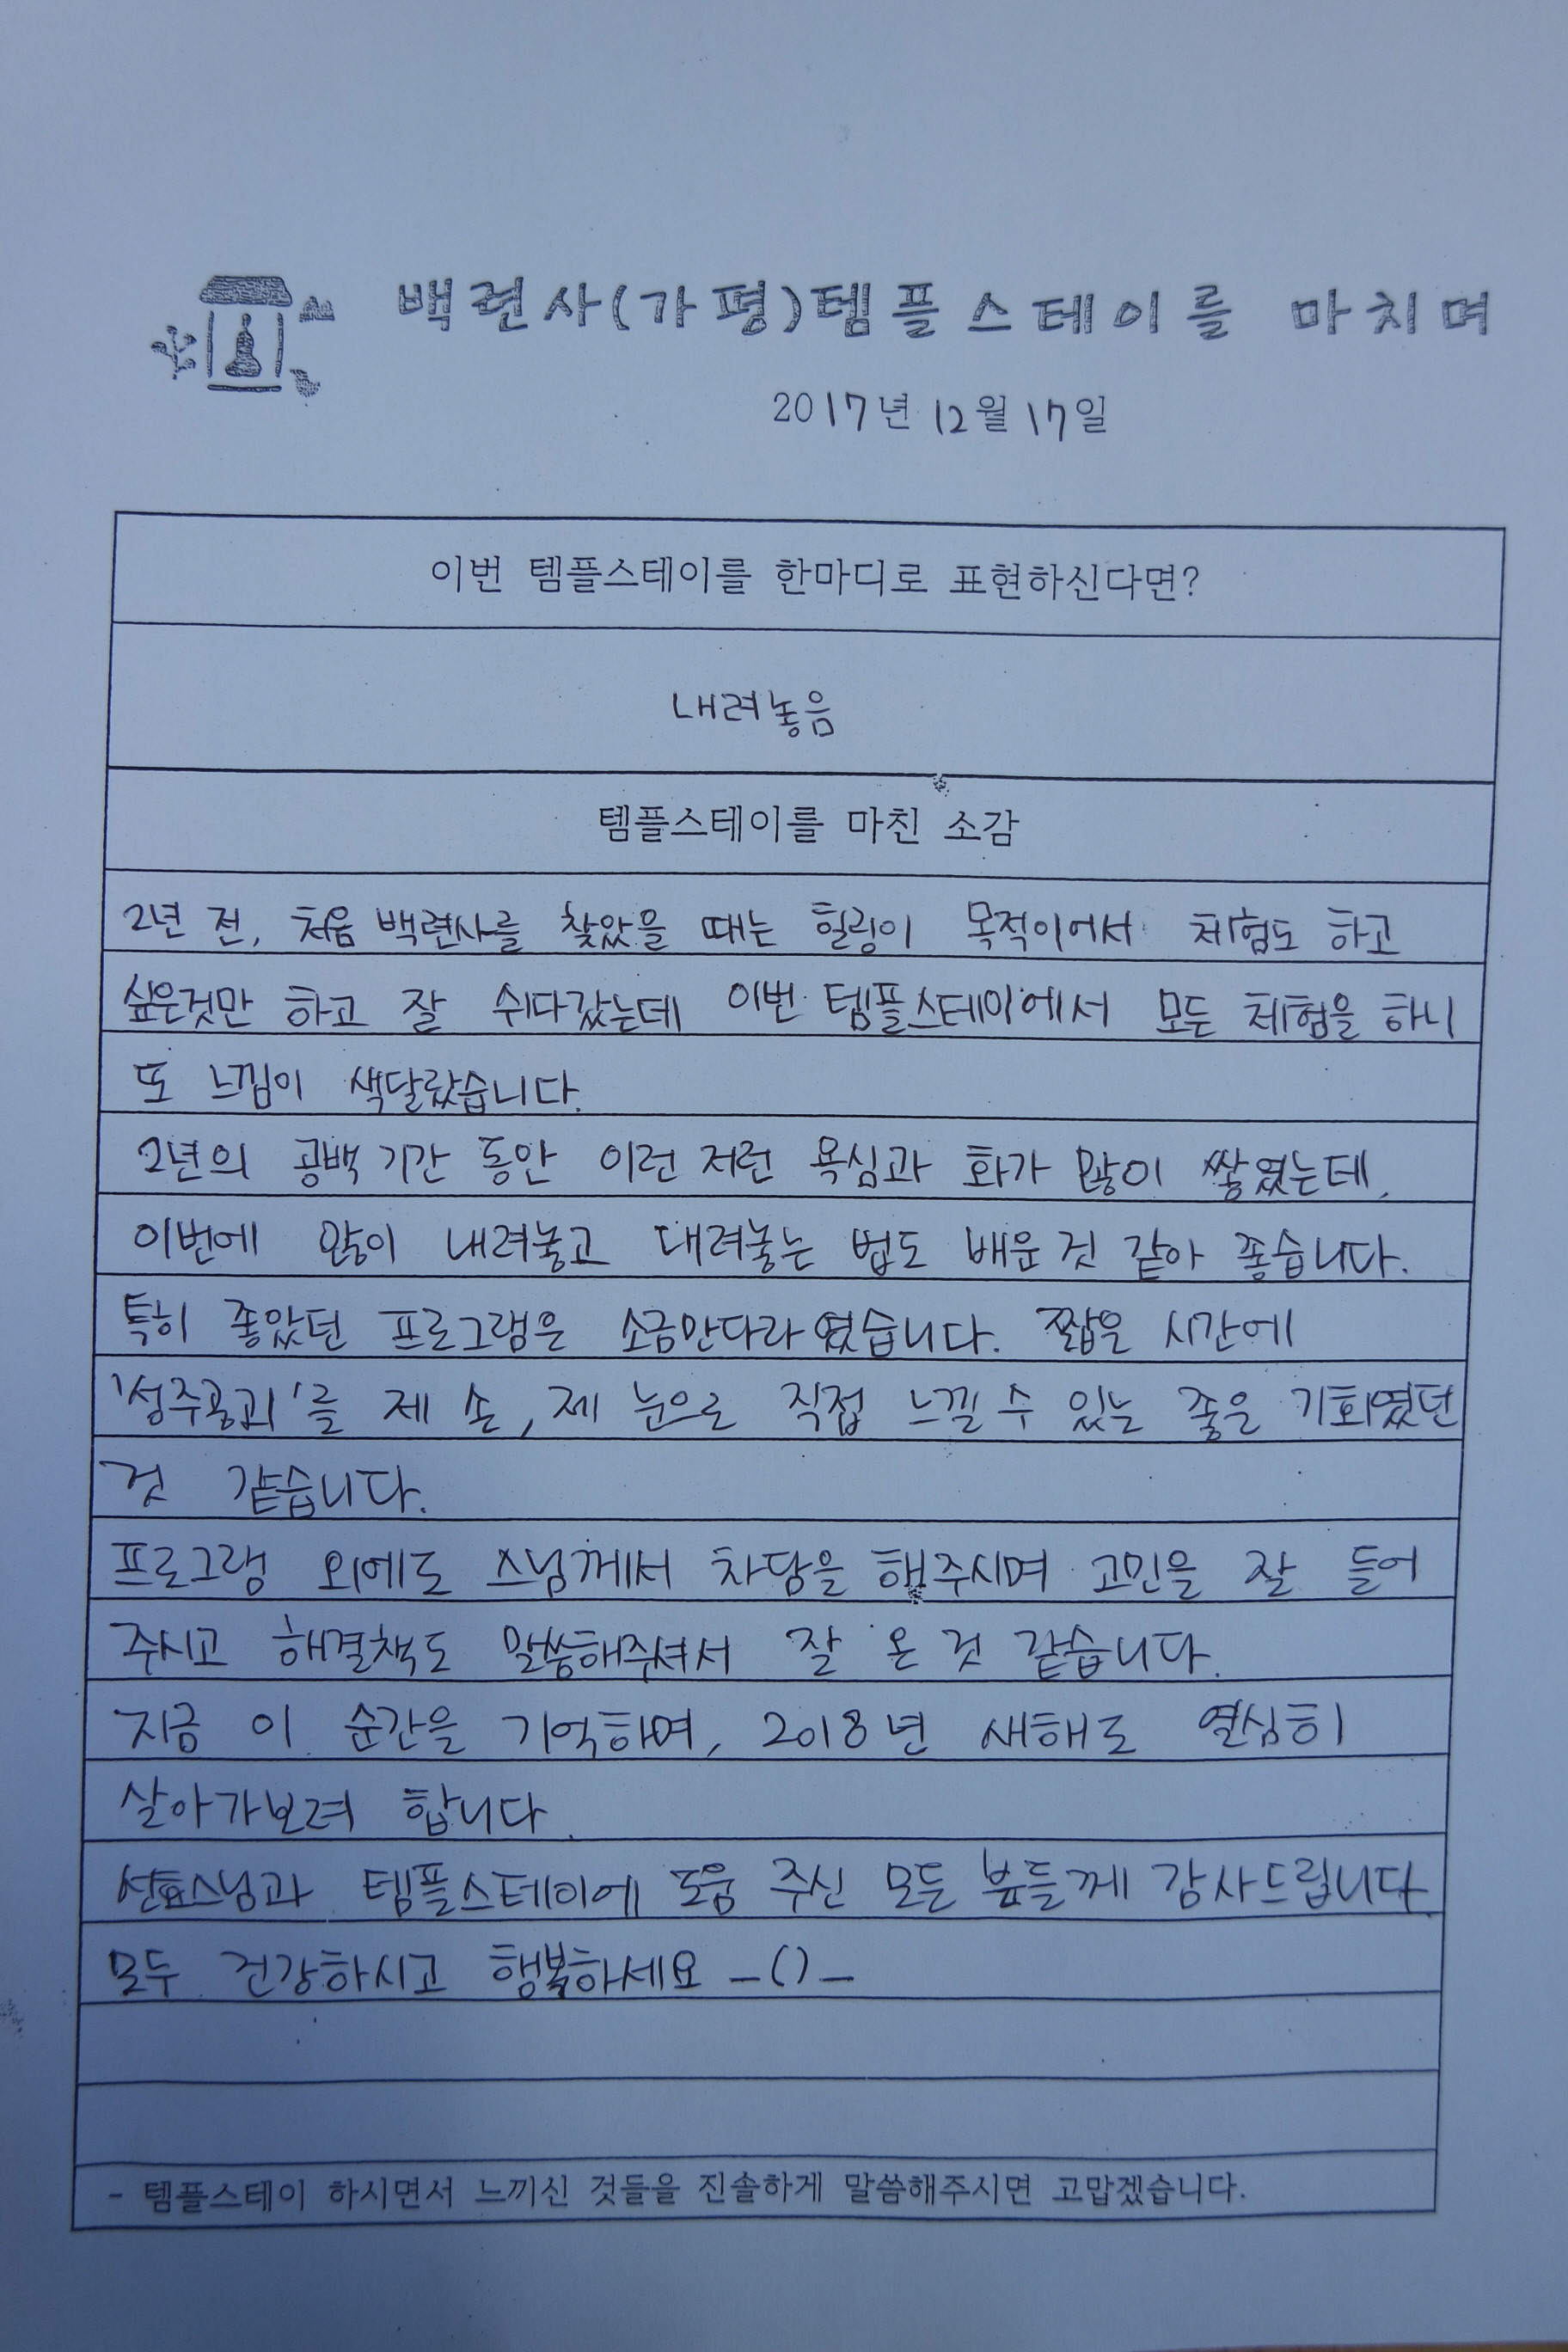 백련사(가평)템플스테이를 마치며
2017년 12월 17일
이번 템플스테이를 한마디로 표현하신다면?
내려놓음
템플스테이를 마친 소감
2년 전, 처음 백련사를 찾았을 때는 힐링이 목적이어서 체험도 하고
싶은것만 하고 잘 쉬다갔는데 이번 템플스테이에서 모든 체험을 하니
또 느낌이 색달랐습니다.
2년의 공백 기간 동안 이런 저런 욕심과 화가 많이 쌓였는데,
이번에 많이 내려놓고 내려놓는 법도 배운 것 같아 좋습니다.
특히 좋았던 프로그램은 소금만다라였습니다. 짧은 시간에
'성주공괴'를 제 손, 제 눈으로 직접 느낄 수 있는 좋은 기회였던
것 같습니다.
프로그램 외에도 스님께서 차담을 해주시며 고민을 잘 들어
주시고 해결책도 말씀해주셔서 잘 온 것 같습니다.
지금 이 순간을 기억하며, 2018년 새해도 열심히
살아가보려 합니다.
선효스님과 템플스테이에 도움 주신 모든 분들께 감사드립니다
모두 건강하시고 행복하세요 _()_
- 템플스테이 하시면서 느끼신 것들을 진솔하게 말씀해주시면 고맙겠습니다.